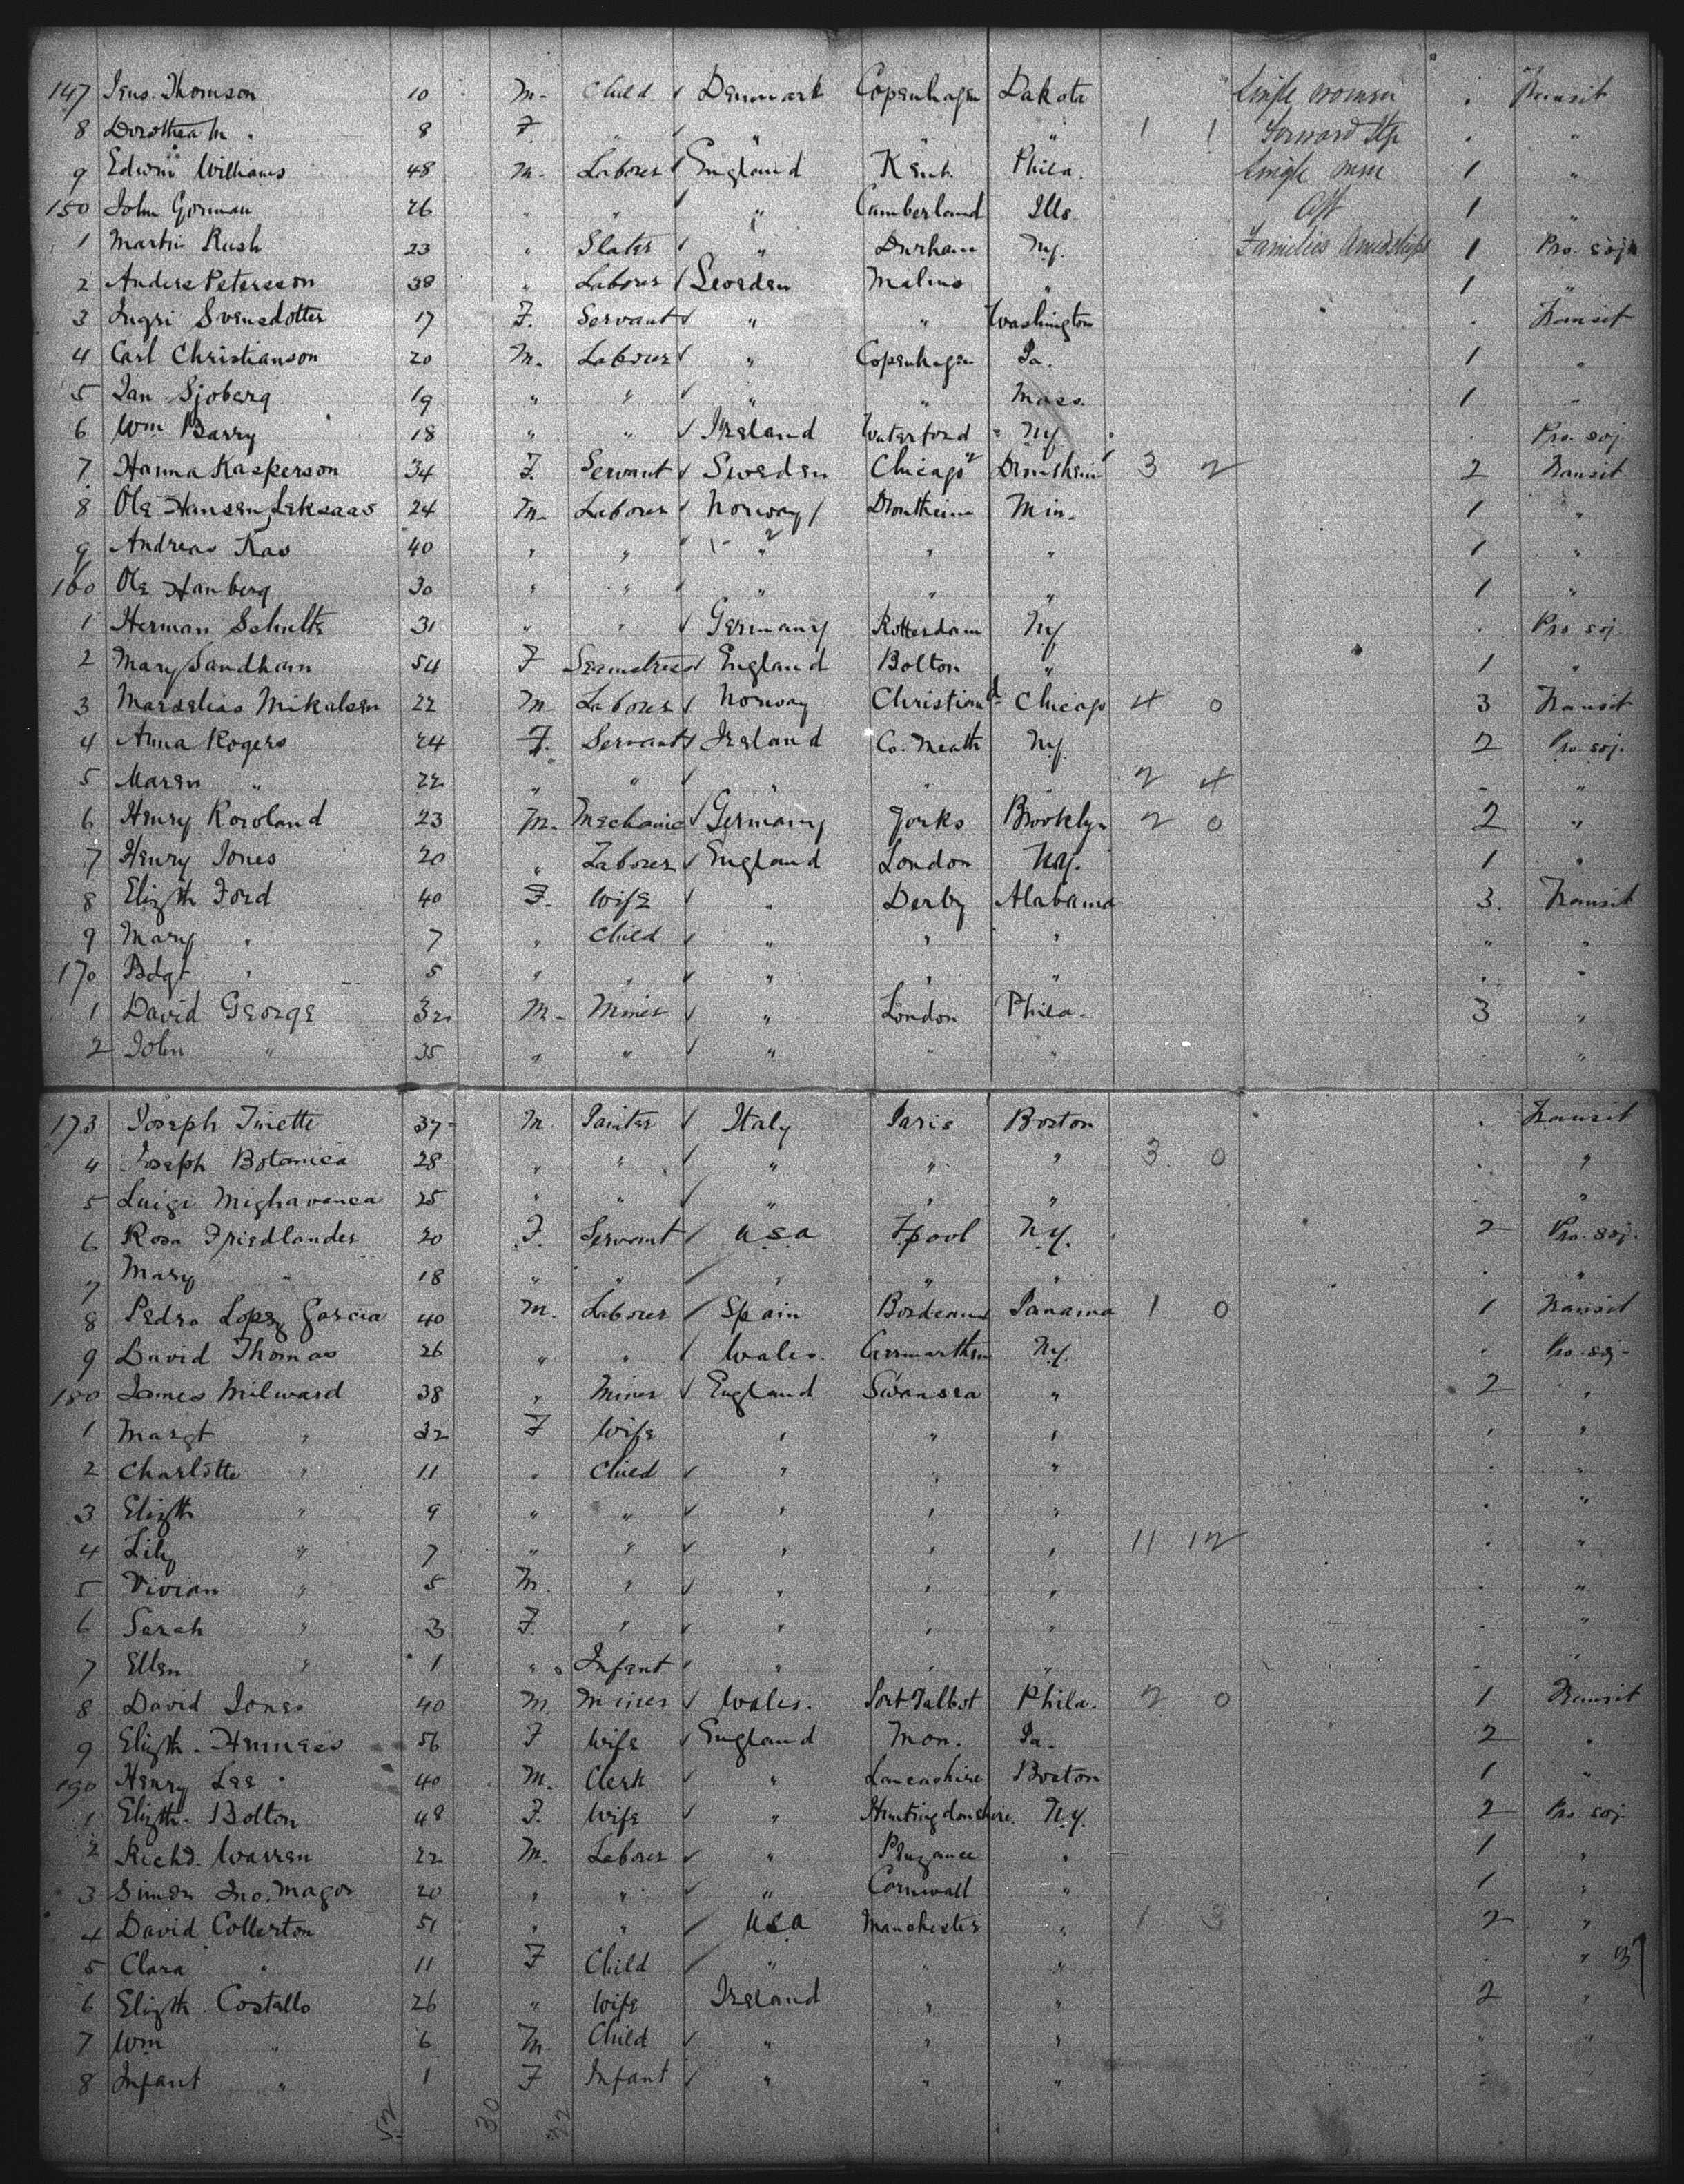 147 Jens Thomson 10 M. Child ✓ Denmark Copenhagen Dakota Single women . Transit
8 Dorothea M " 8 F. " ✓ " " " 1 1 Forward Stge . "
9 Edwin Williams 48 M. Labourer ✓ England Kent Phila. Single men 1 "
150 John Gorman 26 " " ✓ " Cumberland Ills. Aft 1 "
1 Martin Rush 23 " Slater ✓ " Durham N.Y. Families Amidships 1 Pro. soj.
2 Anders Petersson 38 " Labourer ✓ Sweden Malmo " 1 "
3 Ingri Svensdotter 17 F. Servant ✓ " " Washington . Transit
4 Carl Christianson 20 M. Labourer ✓ " Copenhagen Pa. 1 "
5 Jan Sjoberg 19 " " ✓ " " Mass. 1 "
6 Wm Barry 18 " " ✓ Ireland Waterford N.Y. . Pro. soj.
7 Hanna Kasperson 34 F. Servant ✓ Sweden Chicago 2 Drontheim 1 3 2 2 Transit
8 Ole Hansen Leksaas 24 M. Labourer ✓ Norway Drontheim Min. 1 "
9 Andreas Rao 40 " " ✓ " " " 1 "
160 Ole Hamberg 30 " " ✓ " " " 1 "
1 Herman Schultz 31 " " ✓ Germany Rotterdam N.Y. . Pro soj
2 Mary Sandham 54 F Seamstress ✓ England Bolton " 1 "
3 Marselias Mikalsen 22 M Labourer ✓ Norway Christiand Chicago 4 0 3 Transit
4 Anna Rogers 24 F. Servant ✓ Ireland Co. Meath N.Y. 2 Pro. soj.
5 Maren " 22 " " ✓ " " " 2 4 . "
6 Henry Rowland 23 M. Mechanic ✓ Germany Yorks Brooklyn 2 0 2 "
7 Henry Jones 20 " Labourer ✓ England London N.Y. 1 "
8 Elizth Ford 40 F. Wife ✓ " Derby Alabama 3. Transit
9 Mary " 7 " Child ✓ " " " " "
170 Bdgt " 5 " " ✓ " " " . "
1 David George 32 M. Miner ✓ " London Phila. 3 "
2 John " 35 " " ✓ " " " . "
173 Joseph Tinette 37 M Painter ✓ Italy Paris Boston . Transit
4 Joseph Botanica 28 " " ✓ " " " 3 0 . "
5 Luigi Mighavanca 25 " " ✓ " " " . "
6 Rosa Friedlander 20 F. Servant ✓ U.S.A L'pool N.Y. 2 Pro. soj.
7 Mary " 18 " " ✓ " " " . "
8 Pedro Lopez Garcia 40 M. Labourer ✓ Spain Bordeaux Panama 1 0 1 Transit
9 David Thomas 26 " " ✓ Wales. Carmarthen N.Y. . Pro. soj.
180 James Milward 38 " Miner ✓ England Swansea " 2 "
1 Margt " 32 F Wife " " " " "
2 Charlotte " 11 " Child ✓ " " " . "
3 Elizth " 9 " " ✓ " " " . "
4 Lily " 7 " " ✓ " " " 11 12 . "
5 Vivian " 5 M. " ✓ " " " . "
6 Sarah " 3 F. " ✓ " " " . "
7 Ellen " 1 " Infant ✓ " " " . "
8 David Jones 40 M. Miner ✓ Wales. Port Talbot Phila. 2 0 1 Transit
9 Elizth. 56 F Wife ✓ England Mon. Pa. 2 "
190 Henry Lee 40 M. Clerk ✓ " Lancashire Boston 1 "
1 Elizth. Bolton 48 F. Wife ✓ " Huntingdonshire. N.Y. 2 Pro. soj.
2 Richd. Warren 22 M. Labourer ✓ " Penzance " 1 "
3 Simon Jno. Magor 20 " " ✓ " Cornwall " 1 "
4 David Collerton 51 " " ✓ U.S.A Manchester " 1 3 2 "
5 Clara " 11 F Child ✓ " " " . "
6 Elizth Costello 26 " Wife Ireland " " 2 "
7 Wm " 6 M. Child ✓ " " " " "
8 Infant " 1 F Infant ✓ " " "
52 30 22